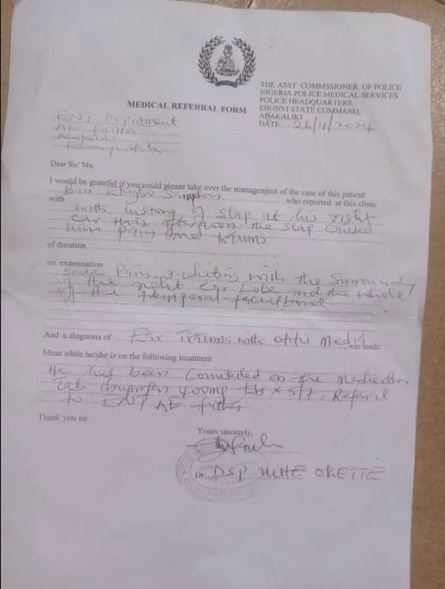 THE ASST. COMMSSIONER OF POLICE
NIGERIA POLICE MEDICAL SERVICES
POLICE HEADQUARTERS,
EBONYI STATE COMMAND,
ABAKALIKI
DATE: 26/11/2024
MEDICAL REFERRAL FORM
ENT Department
Dear Sir/ Ma,
I would be grateful if you could please take over the management of the case of this patient
who reported at this clinic
with
with history of slap at his right
ear this afternoon the slap caused
him pain and
of duration
on examination
Severe Pain radiating with the Surroundy
of the right ear lobe and the whole
of the temporal
And a diagnosis of Ear Trauma with Media was made.
Mean while he/she is on the following treatment
He had been Commenced on the medication
Ibuprofen 400mg tds x 5/7. Referral
to ENT AE
Thank you sir.
Yours sincerely,
Dr. DSP. UCHE ORETTE